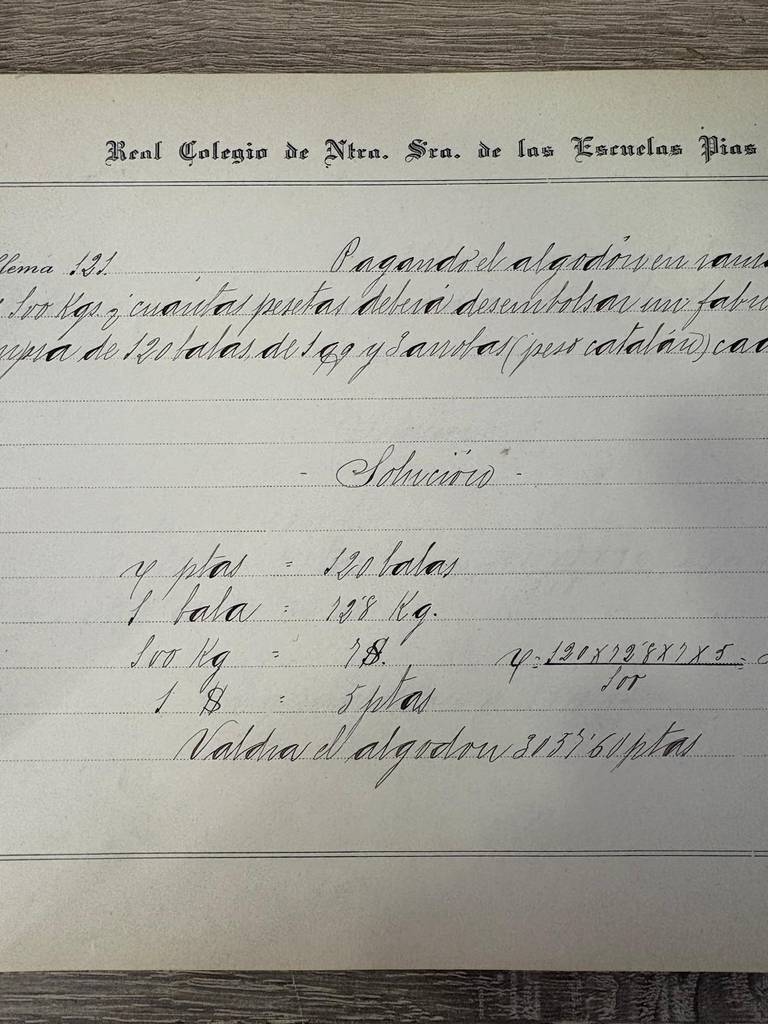 Real Colegio de Ntra. Sra. de las Escuelas Pias
lema 121. Pagando el algodón en rama
100 Kgs. ¿cuántas pesetas deberá desembolsar un fabri
mpra de 120 balas, de 1 qq y 3 arrobas (peso catalán) cad
- Solución -
x ptas = 120 balas
1 bala = 72'8 Kg.
100 Kg = 7 $.
x = 120 x 72'8 x 7 x 5 =
100
1 $ = 5 ptas
Valdrá el algodon 3057'60 ptas